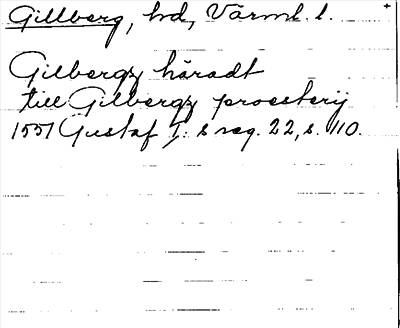 Gillberg, hd, Värml. l.
Gilbergz häradt
till Gilbergz proesterij
1551 Gustaf I: s reg. 22, s. 110.